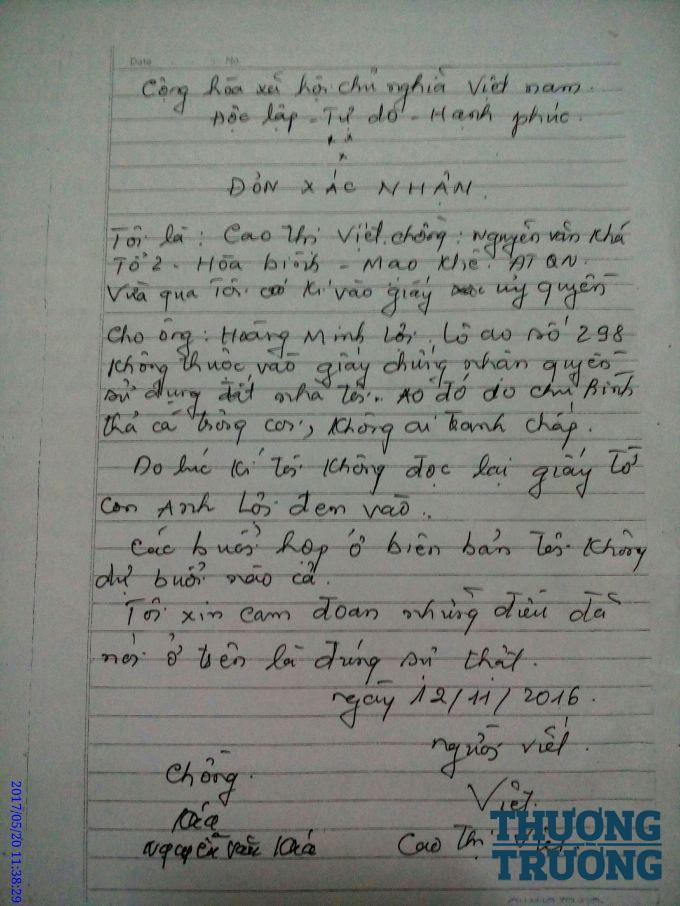 Date No.
Cộng hòa xã hội chủ nghĩa Việt nam.
Độc lập - Tự do - Hạnh phúc.
ĐƠN XÁC NHẬN.
Tôi là: Cao Thị Việt. chồng: Nguyễn văn Khá
Tổ 2 - Hòa bình - Mạo Khê. ĐT QN.
Vừa qua Tôi có kí vào giấy ủy quyền
Cho ông: Hoàng Minh Lời. Lô ao số 298
không thuộc vào giấy chứng nhận quyền
sử dụng đất nhà tôi. Ao đó do chú Bình
thả cá trông coi, không ai tranh chấp.
Do lúc kí tôi không đọc lại giấy tờ
con Anh Lời đem vào.
Các buổi họp ở biên bản tôi không
dự buổi nào cả.
Tôi xin cam đoan những điều đã
nói ở trên là đúng sự thật.
ngày 12/11/2016.
người viết.
Chồng.
Việt.
Khá
Nguyễn văn Khá
Cao Thị Việt.
THƯƠNG
TRƯỜNG
2017/05/20 11:38:29